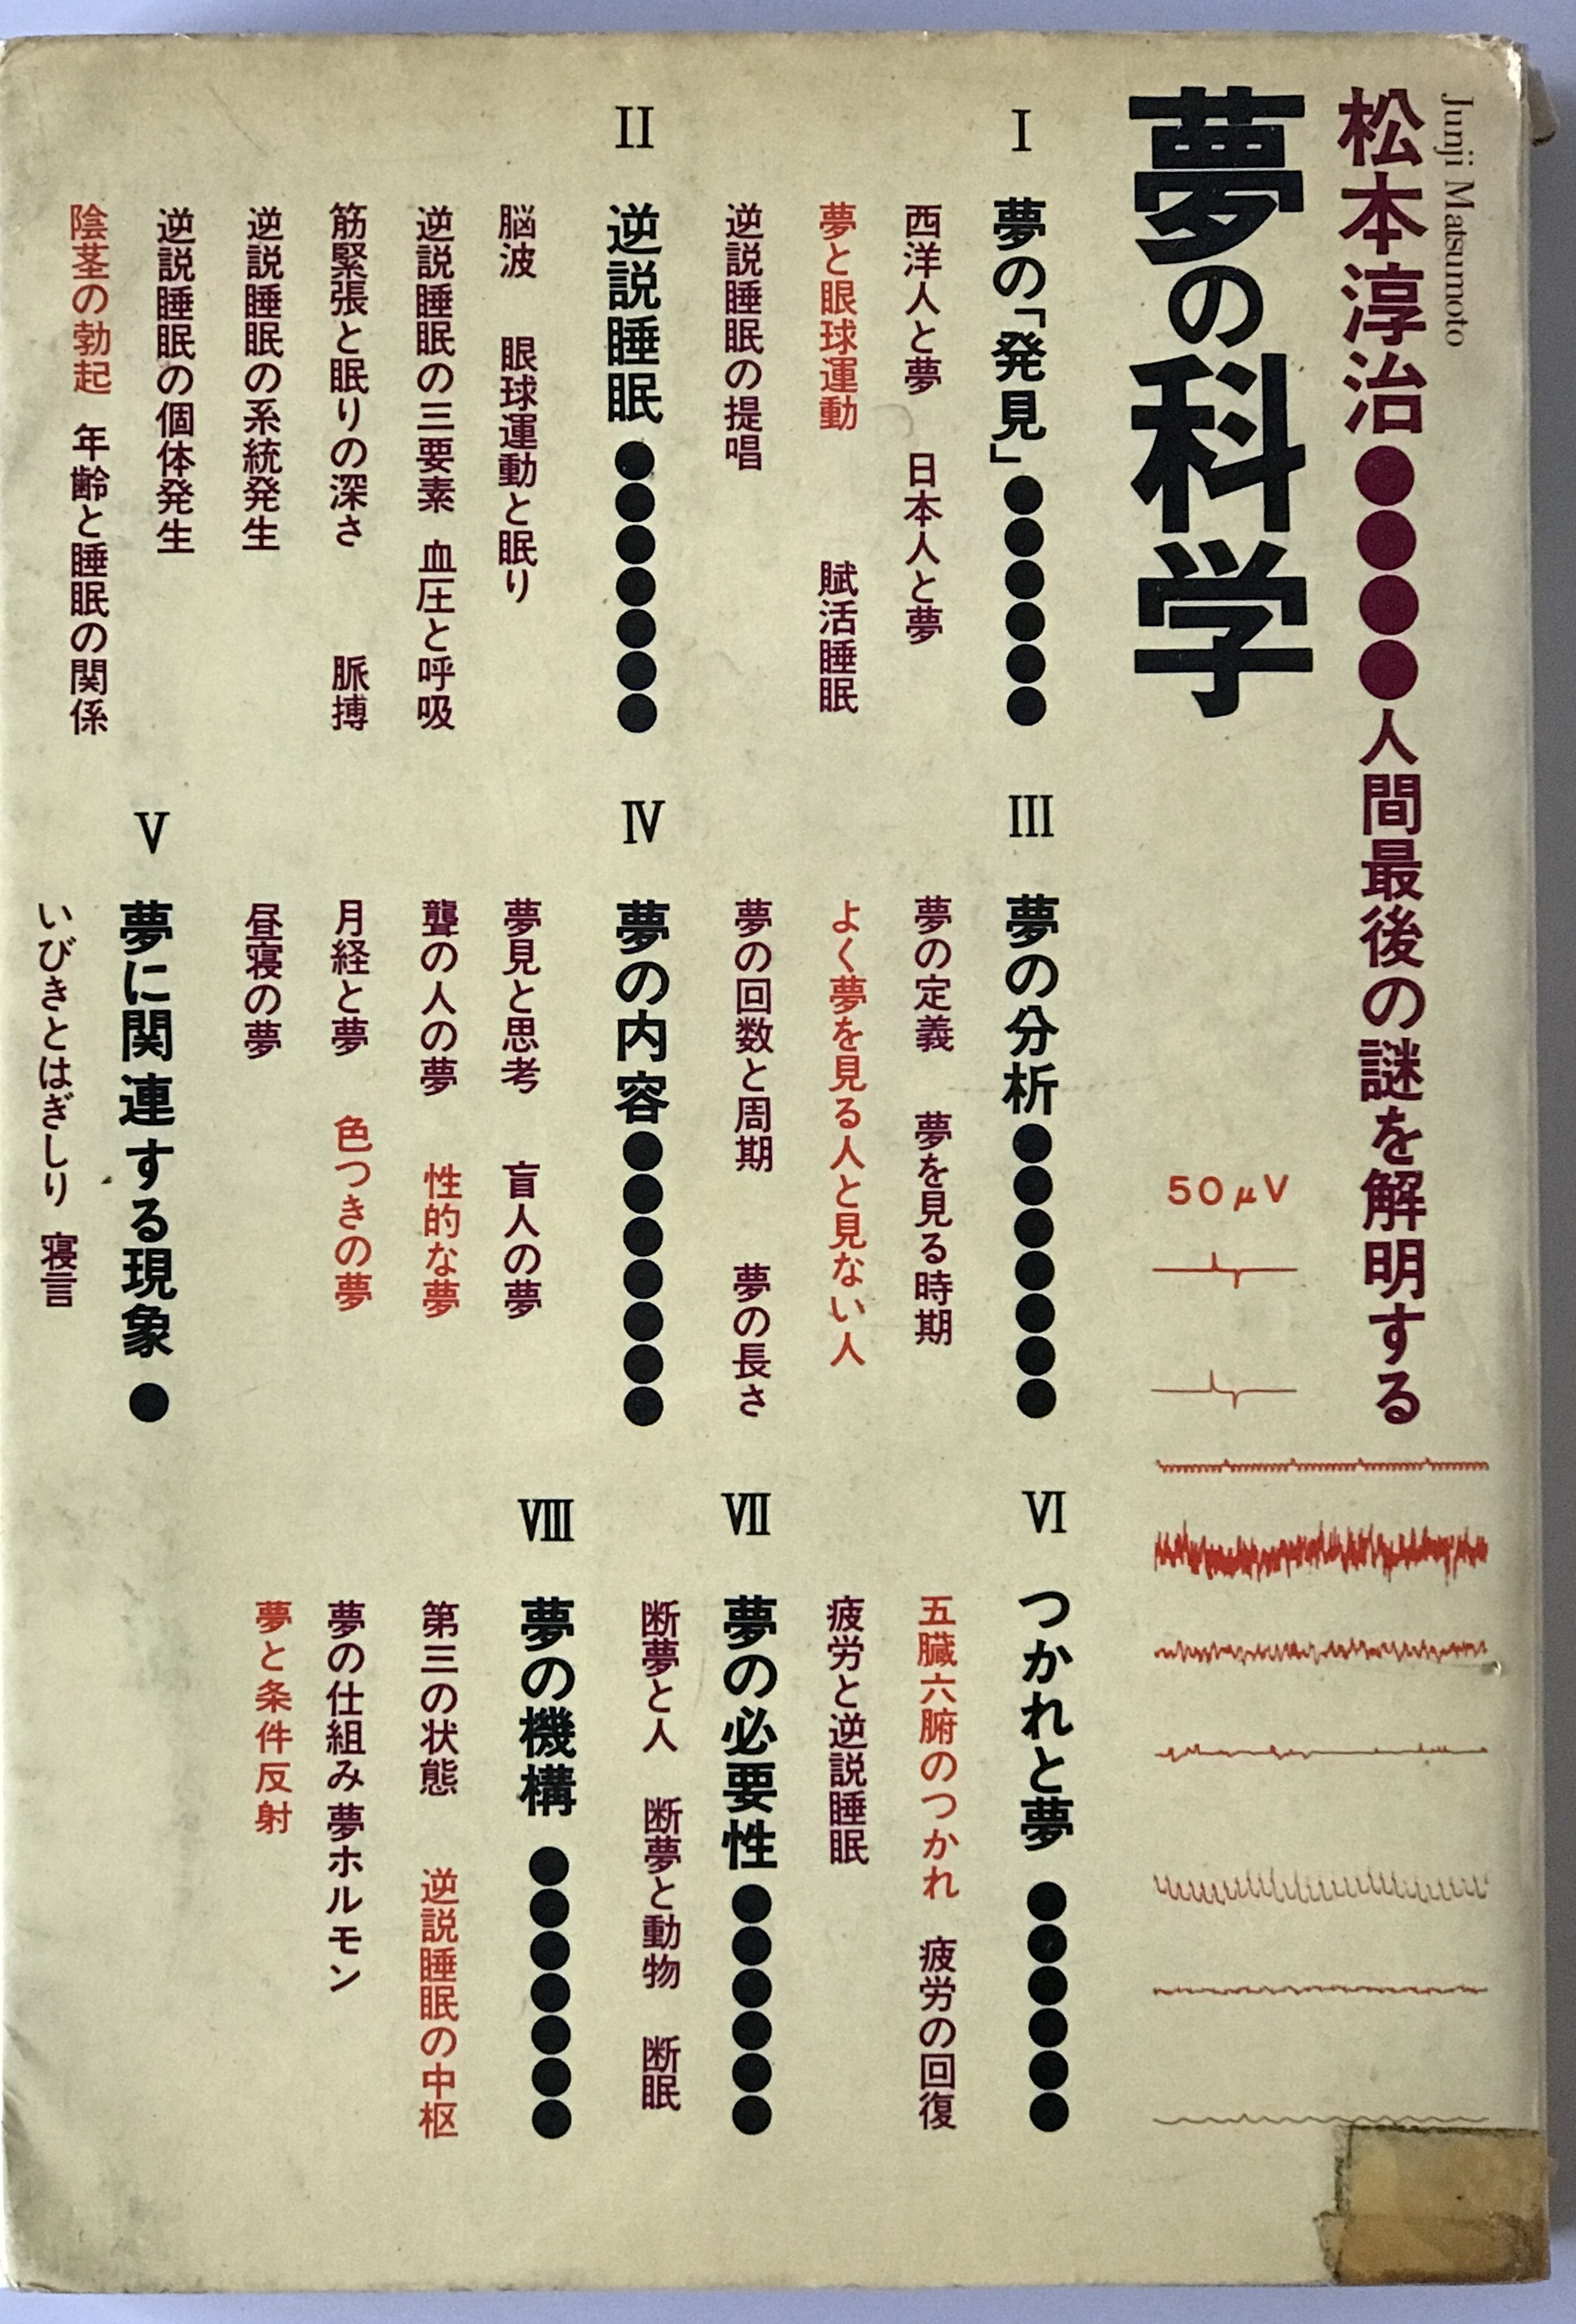 Junji Matsumoto
松本淳治●●●●人間最後の謎を解明する
夢の科学
50μV
I 夢の「発見」●●●●●●
西洋人と夢 日本人と夢
夢と眼球運動 賦活睡眠
逆説睡眠の提唱
II 逆説睡眠●●●●●●●
脳波 眼球運動と眠り
逆説睡眠の三要素 血圧と呼吸
筋緊張と眠りの深さ 脈搏
逆説睡眠の系統発生
逆説睡眠の個体発生
陰茎の勃起 年齢と睡眠の関係
III 夢の分析●●●●●●●
夢の定義 夢を見る時期
よく夢を見る人と見ない人
夢の回数と周期 夢の長さ
IV 夢の内容●●●●●●●
夢見と思考 盲人の夢
聾の人の夢 性的な夢
月経と夢 色つきの夢
昼寝の夢
V 夢に関連する現象●
いびきとはぎしり 寝言
VI つかれと夢●●●●●●
五臓六腑のつかれ 疲労の回復
疲労と逆説睡眠
VII 夢の必要性●●●●●●
断夢と人 断夢と動物 断眠
VIII 夢の機構●●●●●●●
第三の状態 逆説睡眠の中枢
夢の仕組み 夢ホルモン
夢と条件反射